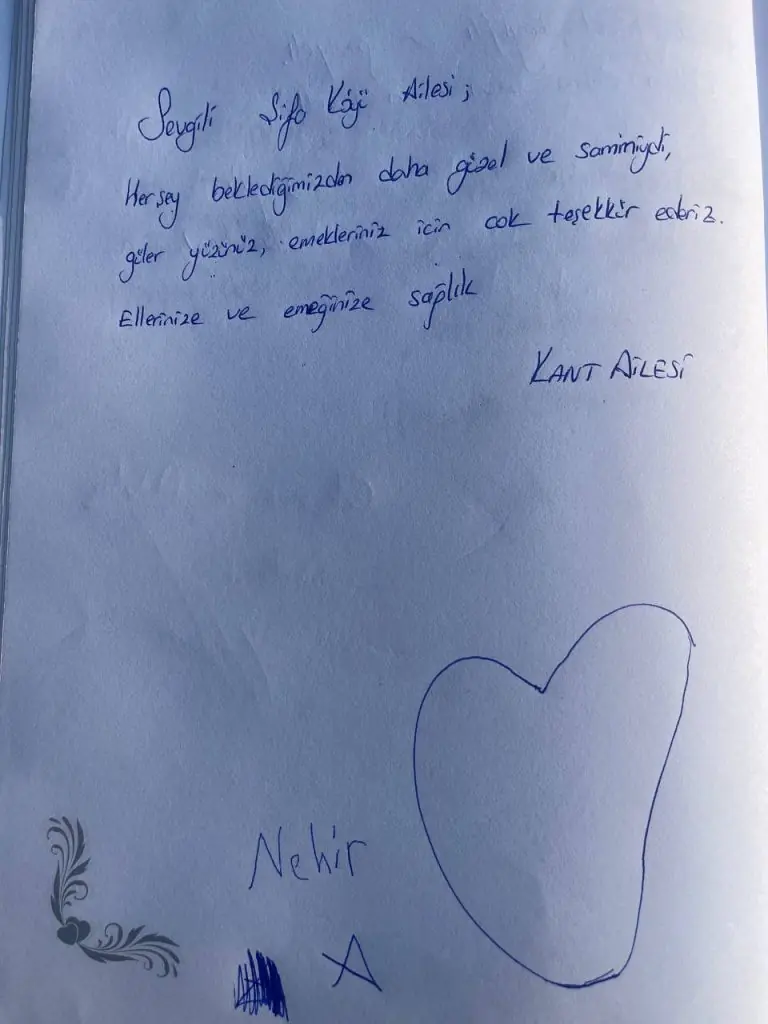 Sevgili Şifa Köyü Ailesi;
Herşey beklediğimizden daha güzel ve samimiydi,
güler yüzünüz, emekleriniz için çok teşekkür ederiz.
Ellerinize ve emeğinize sağlık
KANT AİLESİ
Nehir
A